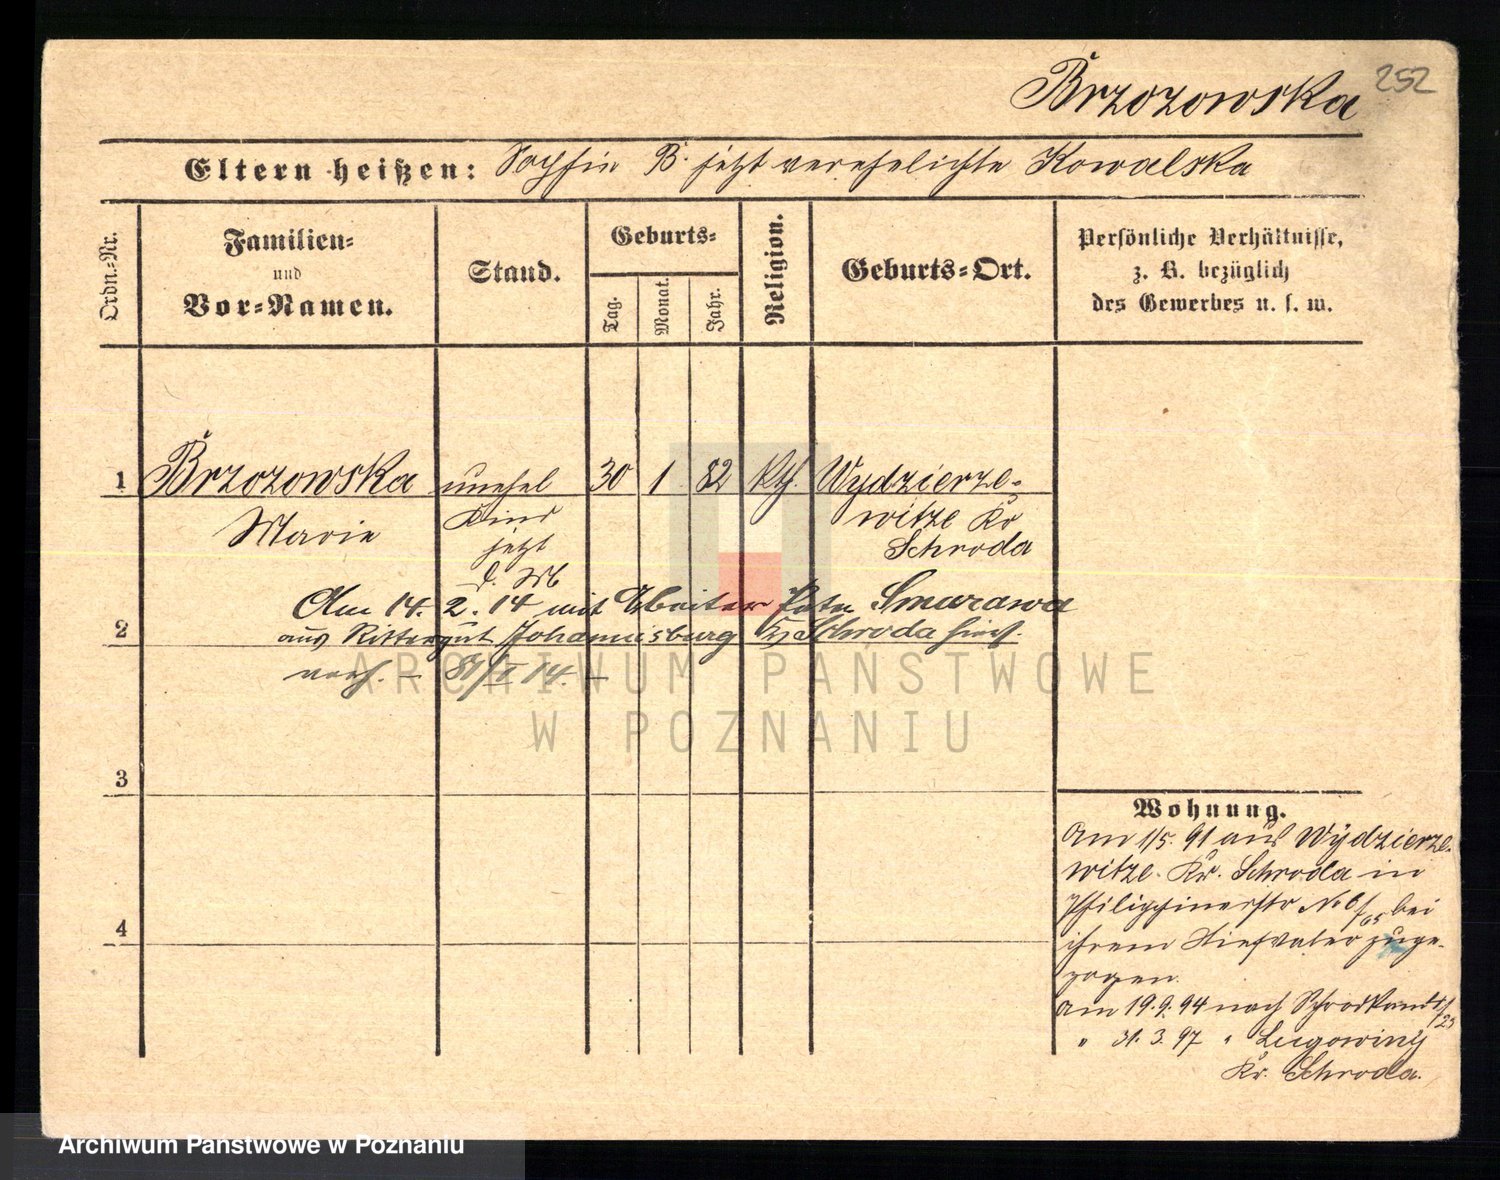 Brzozowska 252
Eltern heißen: Sophie B. jetzt verehelichte Kowalska
Ordn.-Nr.
Familien-
und
Vor-Namen.
Stand.
Geburts-
Tag.
Monat.
Jahr.
Religion.
Geburts-Ort.
Persönliche Verhältnisse,
z. B. bezüglich
des Gewerbes u. s. w.
1 Brzozowska unehel 30 1 82 kth. Wydzierze-
Marie Kind witze Kr
jetzt Schroda
Am 14. 2. 14 mit Arbeiter Smurawa
2 aus Rittergut Johannisburg Schroda hier
verh. – 14. –
ARCHIWUM PAŃSTWOWE
W POZNANIU
3
4
Wohnung.
Am 1/5. 91 aus Wydzierze-
witze. Kr. Schroda in
Philippinerstr No 6/65 bei
ihrem Stiefvater zuge-
zogen.
Am 19.9.94 nach
" 31. 3. 97 " Lugowiny
Kr. Schroda.
Archiwum Państwowe w Poznaniu